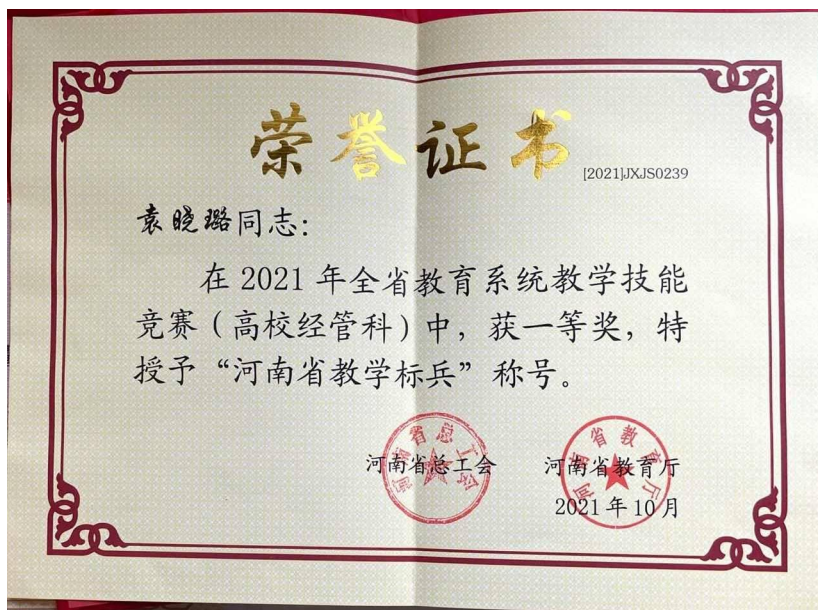 荣誉证书
[2021]JXJS0239
袁晓璐同志:
在2021年全省教育系统教学技能
竞赛(高校经管科)中,获一等奖,特
授予“河南省教学标兵”称号。
河南省总工会
河南省教育厅
2021年10月
河南省总工会
河南省教育厅